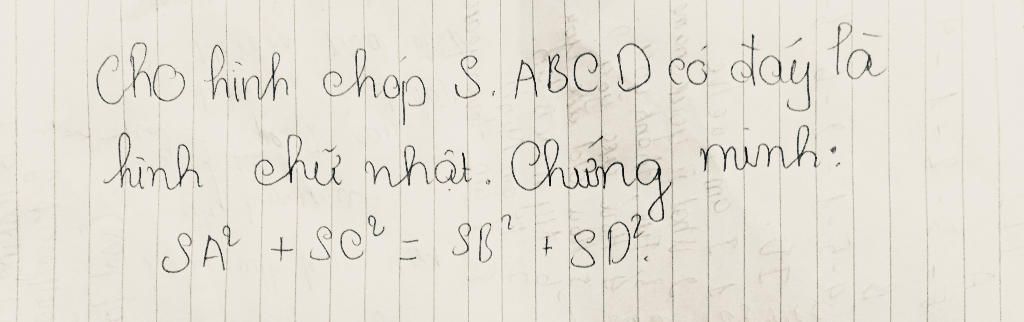 Cho hình chóp S.ABCD có đáy là
hình chữ nhật. Chứng minh:
SA² + SC² = SB² + SD².